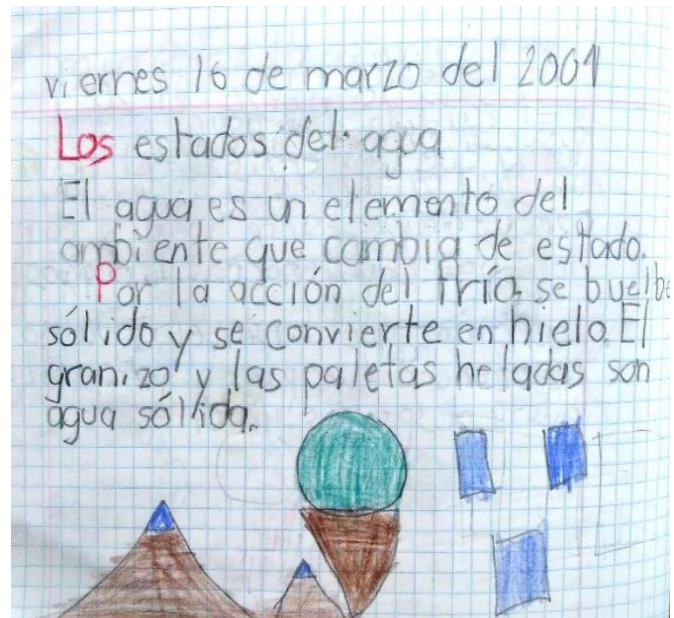 viernes 16 de marzo del 2001
Los estados del agua
El agua es un elemento del
ambiente que cambia de estado.
Por la acción del fría se buelbe
sólido y se convierte en hielo. El
granizo y las paletas heladas son
agua sólida.